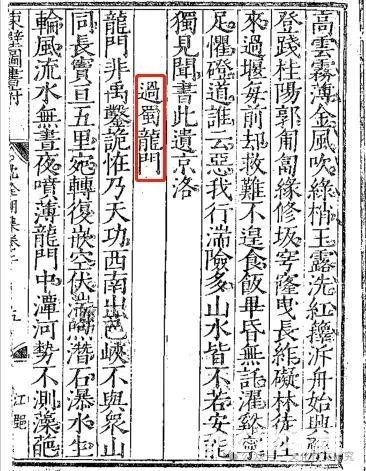 高雲霧薄金風吹綠梢玉露洗紅籜泝舟始興
登踐桂陽郭匍匐緣修坂穹隆曳長㸿礙林徒
來過堰每前却救難不遑食飯畢昏無託濯谿寧
足懼磴道誰云惡我行湍險多山水皆不若安能
獨見聞書此遺京洛
過蜀龍門
龍門非禹鑿詭怪乃天功西南出巴峽不與衆山
同長竇亘五里宛轉復嵌空伏湍喣潛石瀑水生
輪風流水無晝夜噴薄龍門中潭河勢不測藻葩
東壁圖書府
江